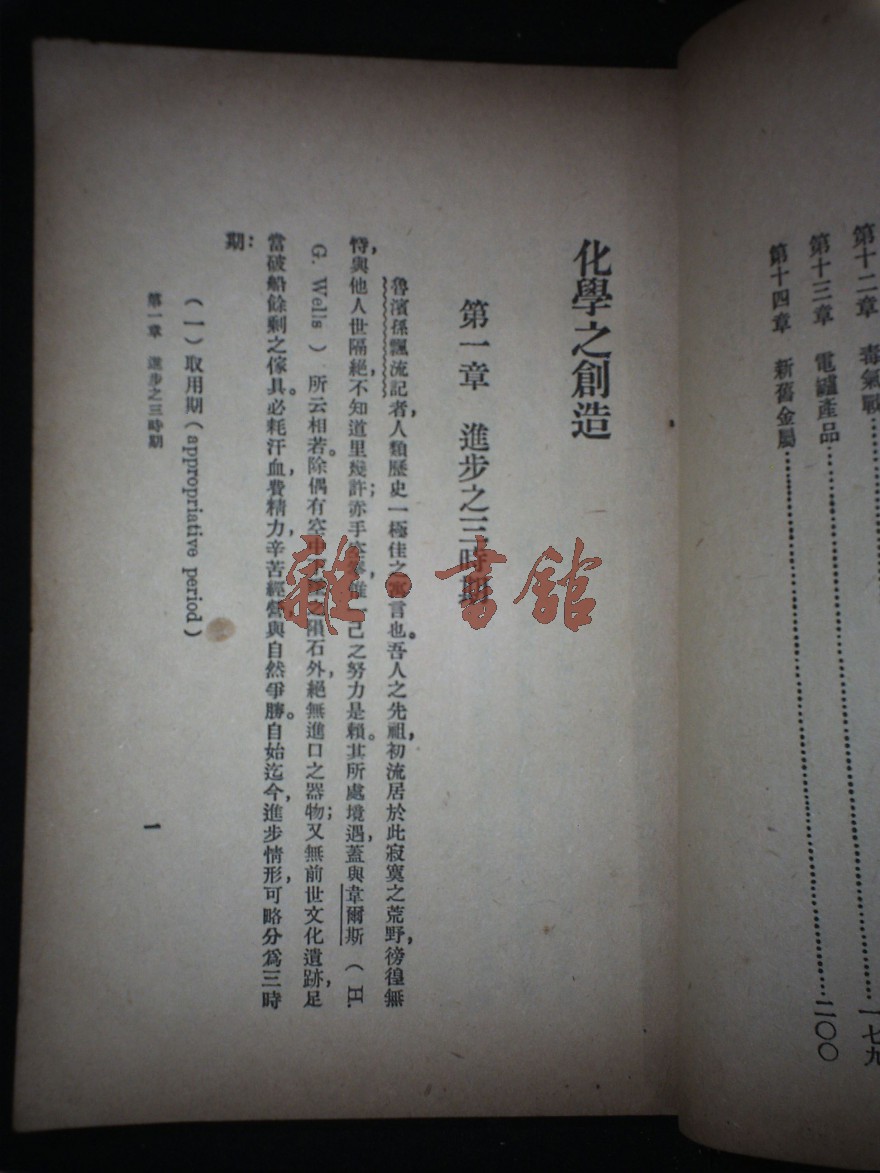 第十二章 毒氣戰
第十三章 電鑪產品……一七九
第十四章 新舊金屬……二〇〇
化學之創造
第一章 進步之三時期
魯濱孫飄流記者,人類歷史一極佳之寓言也。吾人之先祖,初流居於此寂寞之荒野,徬徨無
恃,與他人世隔絕,不知道里幾許;赤手空拳,惟一己之努力是賴。其所處境遇,蓋與韋爾斯(H.
G. Wells)所云相若。除偶有空中之隕石外,絕無進口之器物;又無前世文化遺跡,足
當破船餘剩之傢具。必耗汗血,費精力,辛苦經營,與自然爭勝。自始迄今,進步情形,可略分爲三時
期:
(一)取用期(appropriative period)
第一章 進步之三時期 一
雜·書館